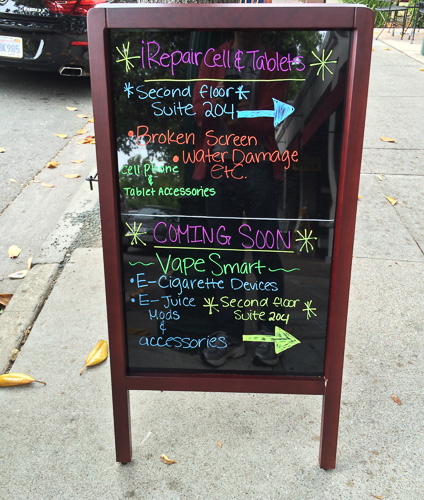 iRepair Cell & Tablets
Second floor
Suite 204
• Broken Screen
• Water Damage
etc.
Cell Phone
&
Tablet Accessories
COMING SOON
~ Vape Smart ~
• E-Cigarette Devices
• E-Juice
Mods
&
accessories
Second floor
Suite 204